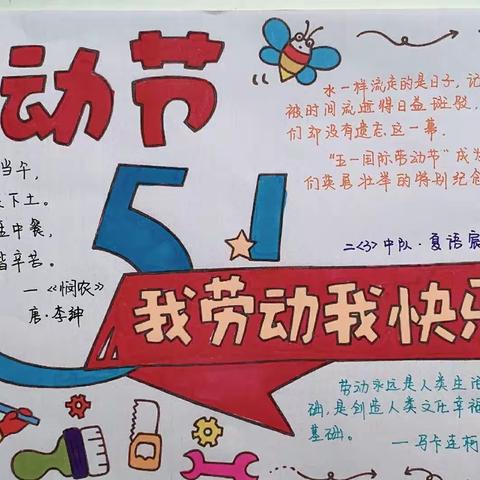 动节
水一样流走的是日子,记
被时间流逝得日益斑驳,
们却没有遗忘这一幕.
“五一国际劳动节”成为
们英勇壮举的特别纪念
当午,
下土。
中餐,
皆辛苦。
—《悯农》
唐·李绅
5.1
二<3>中队·夏语宸
我劳动我快乐
劳动永远是人类生活
础,是创造人类文化幸福
基础。
—马卡连柯